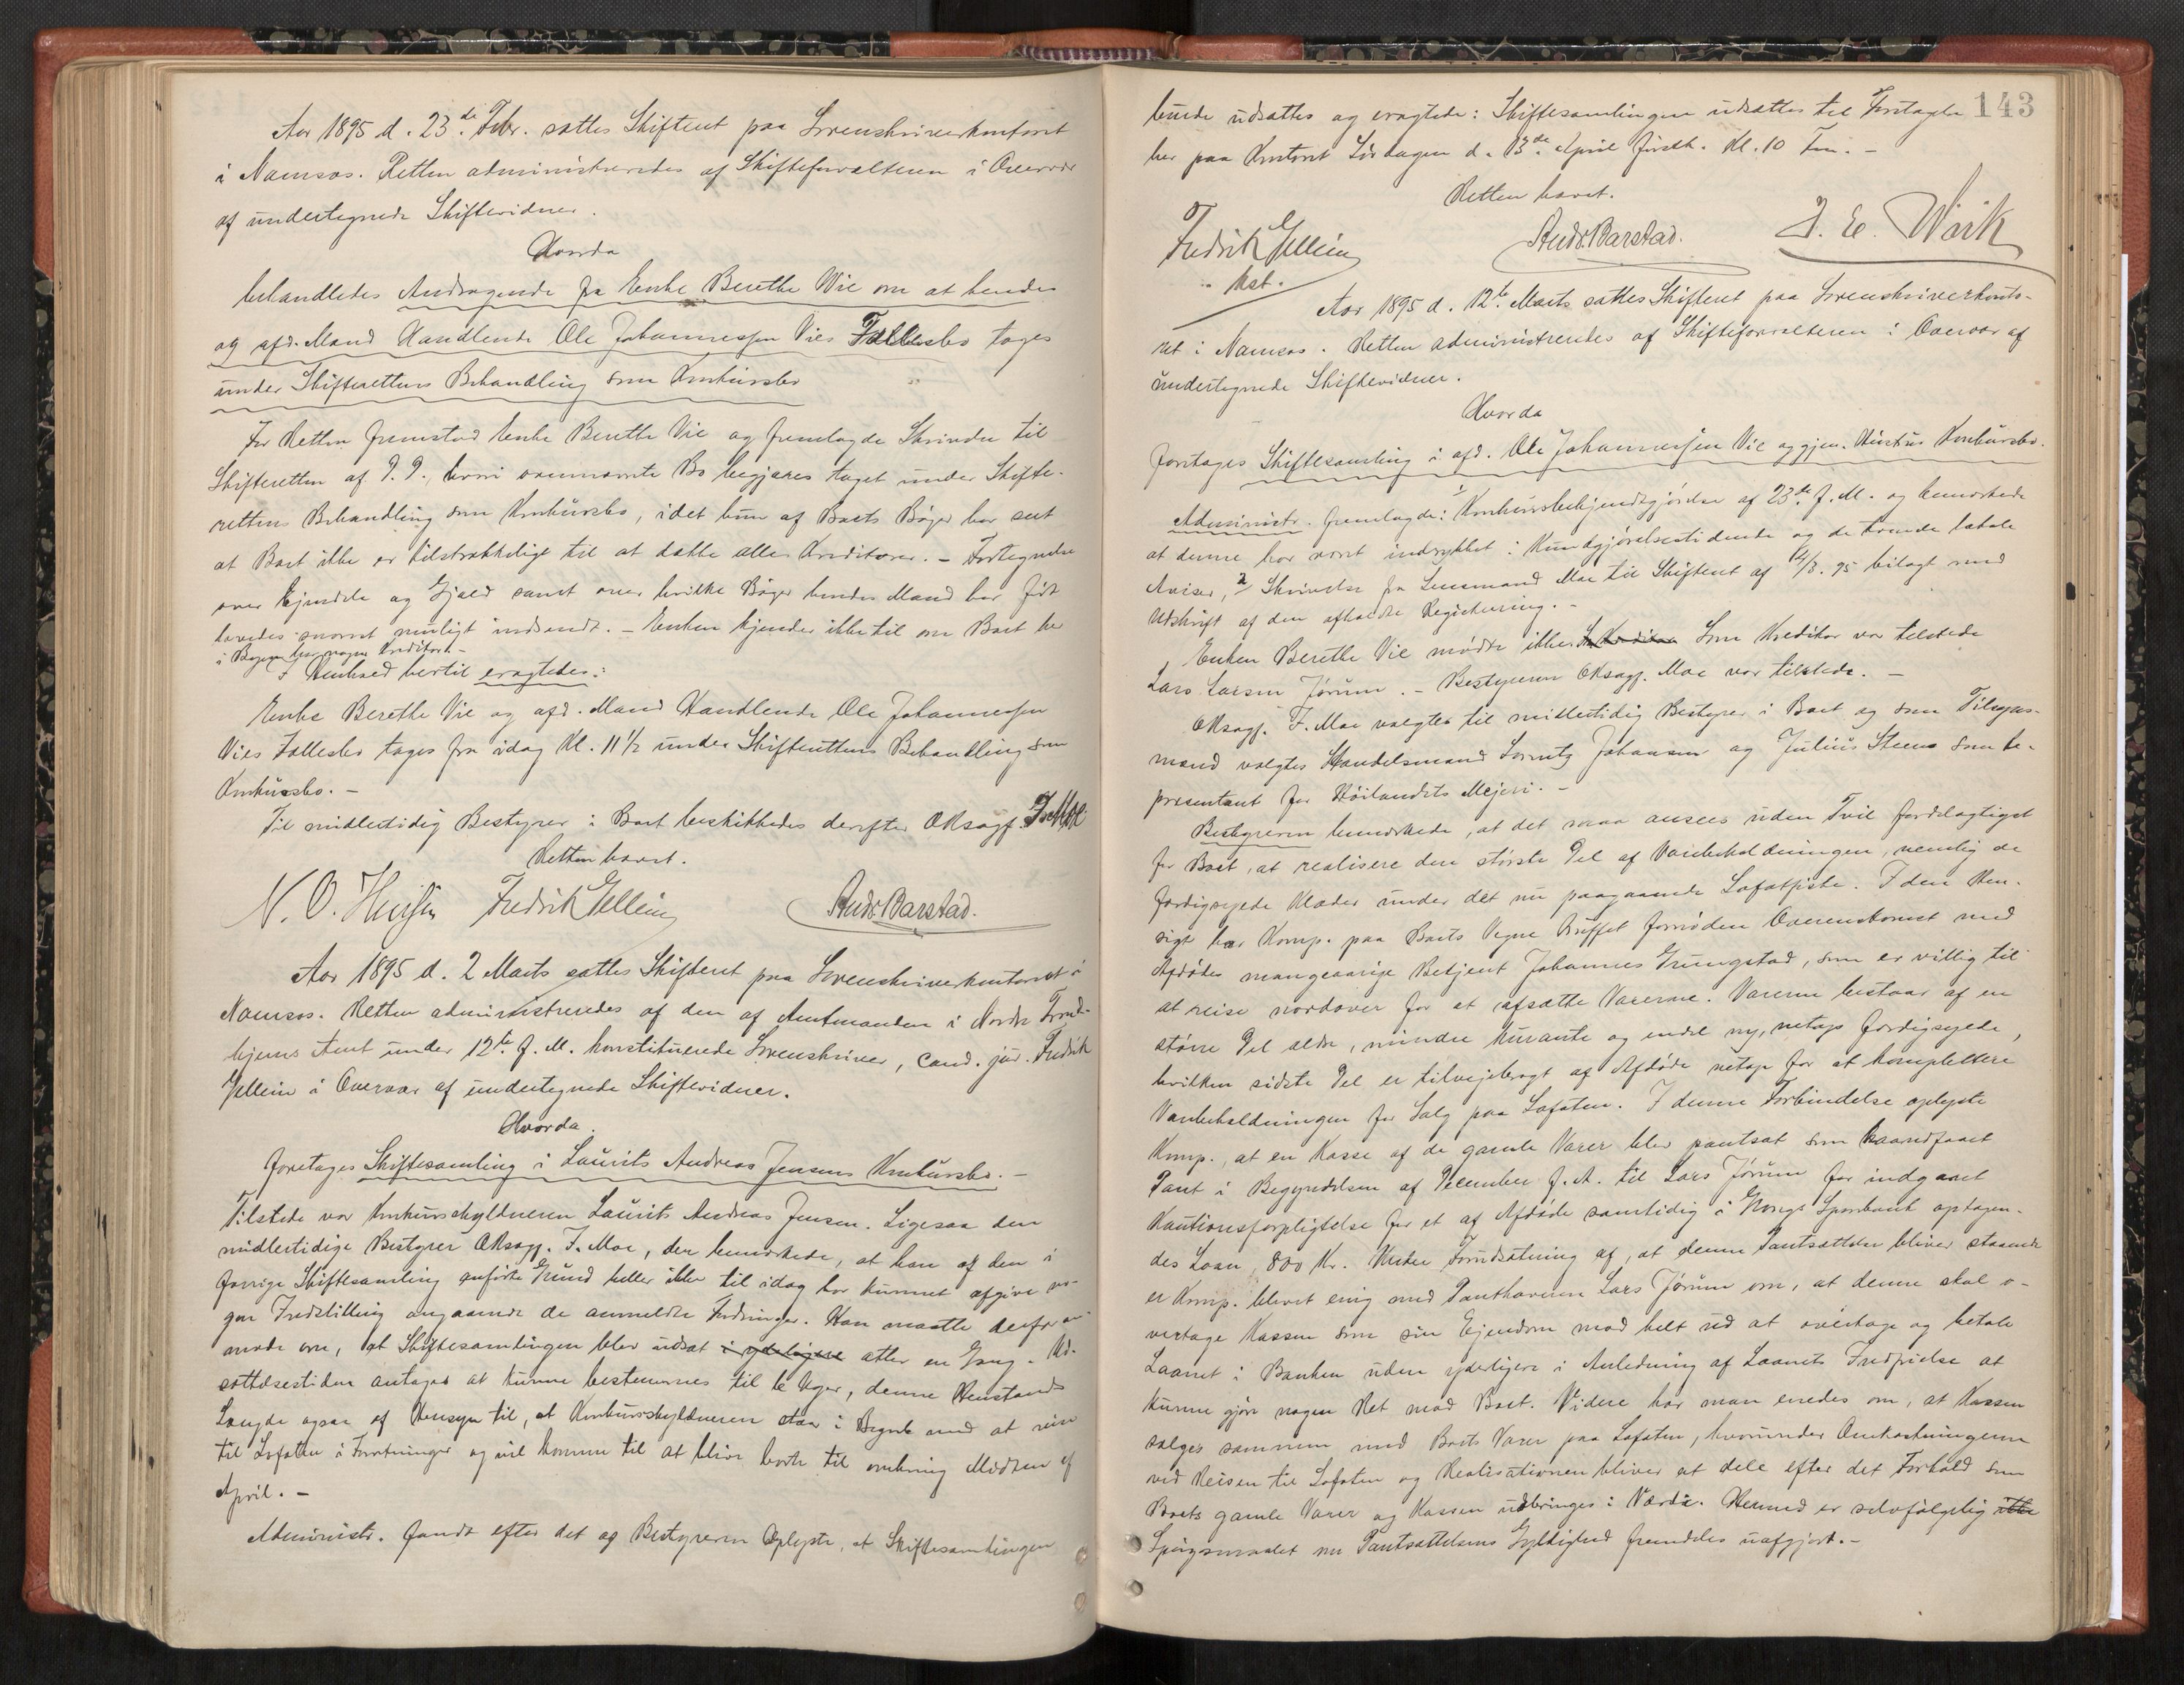 Aar 1895 d. 23de Febr. sattes Skifteret paa Sorenskriverkontoret
i Namsos. Retten administreredes af Skifteforvalteren i Overvær
af undertegnede Skiftevidner.
Hvorda
behandledes Andragende fra Enke Berethe Vie om at hendes
og afd. Mand Handlende Ole Johannessen Vies Fællesbo tages
under Skifterettens Behandling som Konkursbo
For Retten fremstod Enke Berethe Vie og fremlagde Skrivelse til
Skifteretten af D. D., hvori ovennævnte Bo begjæres taget under Skifte-
rettens Behandling som Konkursbo, idet hun af Boets Bøger har seet
at Boet ikke er tilstrækkeligt til at dække alle Kreditorer. - Fortegnelse
over Ejendele og Gjæld samt over hvilke Bøger hendes Mand har ført
lovedes snarest muligt indsendt. - Enken kjender ikke til om Boet her
i Byen har nogen Kreditor. -
I Henhold hertil eragtedes:
Enke Berethe Vie og afd. Mand Handlende Ole Johannessen
Vies Fællesbo tages fra idag Kl. 11 1/2 under Skifterettens Behandling som
Konkursbo. -
Til midlertidig Bestyrer i Boet beskikkedes derefter ORsagf. F. Moe
Retten hævet.
N. O. Fredrik Gellein Andr. Barstad.
Aar 1895 d. 2 Marts sattes Skifteret paa Sorenskriverkontoret i
Namsos. Retten administreredes af den af Amtmanden i Nordre Trond-
hjems Amt under 12te f. M. konstituerede Sorenskriver, cand. jur. Fredrik
Gellein i Overvær af undertegnede Skiftevidner.
Hvorda.
foretages Skiftesamling i Laurits Andreas Jensens Konkursbo. -
Tilstede var Konkursskyldneren Laurits Andreas Jensen. Ligesaa den
midlertidige Bestyrer ORsagf. F. Moe, der bemærkede, at han af den i
forrige Skiftesamling anførte Grund heller ikke til idag har kunnet afgive no-
gen Indstilling angaaende de anmeldte Fordringer. Han maatte derfor an-
mode om, at Skiftesamlingen blev udsat i yderligere atter en Gang. Ud-
sættelsestiden antages at kunne bestemmes til 6 Uger, denne Henstands
Længde ogsaa af Hensyn til, at Konkursskyldneren staar i Begreb med at reise
til Lofoten i Forretninger og vil komme til at blive borte til omkring Midten af
April. -
Administr. fandt efter det af Bestyreren Oplyste, at Skiftesamlingen
143
burde udsættes og eragtede: Skiftesamlingen udsættes til Foretagelse
her paa Kontoret Lørdagen d. 13de April førstk. Kl. 10 Fm. -
Retten hævet.
Fredrik Gellein Andr. Barstad. J. E. Wiik
kst.
Aar 1895 d. 12te Marts sattes Skifteret paa Sorenskriverkonto-
ret i Namsos. Retten administreredes af Skifteforvalteren i Overvær af
undertegnede Skiftevidner.
Hvorda
foretages Skiftesamling i afd. Ole Johannessen Vie og gjen. Hustrus Konkursbo.
Administr. fremlagde: 1 Konkursbekjendtgjørelse af 23de f. M. og bemærkede
at denne har været indrykket i Kundgjørelsestidende og de tvende lokale
Aviser, 2 Skrivelse fra Lensmand Moe til Skifteret af /3. 95 bilagt med
Udskrift af den afholdte Registrering. -
Enken Berethe Vie mødte ikke. Som Kreditor var tilstede
Lars Larsen Jørum. - Bestyreren ORsagf. Moe var tilstede. -
ORsagf. F. Moe valgtes til midlertidig Bestyrer i Boet og som Tilsyns-
mænd valgtes Handelsmand Lorentz Johansen og Julius Steen som Re-
præsentant for Høilandets Mejeri. -
Bestyreren bemærkede, at det maa ansees uden Tvil fordelagtigst
for Boet, at realisere den største Del af Varebeholdningen, nemlig de
færdigsyede Klæder under det nu paagaaende Lofotfiske. I den Hen-
sigt har Komp. paa Boets Vegne truffet fornøden Overenskomst med
Afdødes mangeaarige Betjent Johannes Grungstad, som er villig til
at reise nordover for at afsætte Varerne. Varerne bestaar af en
større Del ældre, mindre kurante og endel ny, netop færdigsyede,
hvilken sidste Del er tilvejebragt af Afdøde netop for at komplettere
Varebeholdningen for Salg paa Lofoten. I denne Forbindelse oplyste
Komp., at en Kasse af de gamle Varer blev pantsat som haandfaaet
Pant i Begyndelsen af December f. A. til Lars Jørum for indgaaet
Kautionsforpligtelse for et af Afdøde samtidig i Grongs Sparebank optagen-
des Laan, 800 Kr. Under Forudsætning af, at denne Pantsættelse bliver staaende
er Komp. blevet enig med Panthaveren Lars Jørum om, at denne skal o-
vertage Kassen som sin Ejendom mod helt ud at overtage og betale
Laanet i Banken uden yderligere i Anledning af Laanets Indfrielse at
kunne gjøre nogen Ret mod Boet. Videre har man enedes om, at Kassen
sælges sammen med Boets Varer paa Lofoten, hvorunder Omkostningerne
ved Reisen til Lofoten og Realisationen bliver at dele efter det Forhold som
Boets gamle Varer og Kassen udbringes i Værdi. Hermed er selvfølgelig ikke
Spørgsmaalet om Pantsættelsens Gyldighed fremdeles uafgjort. -